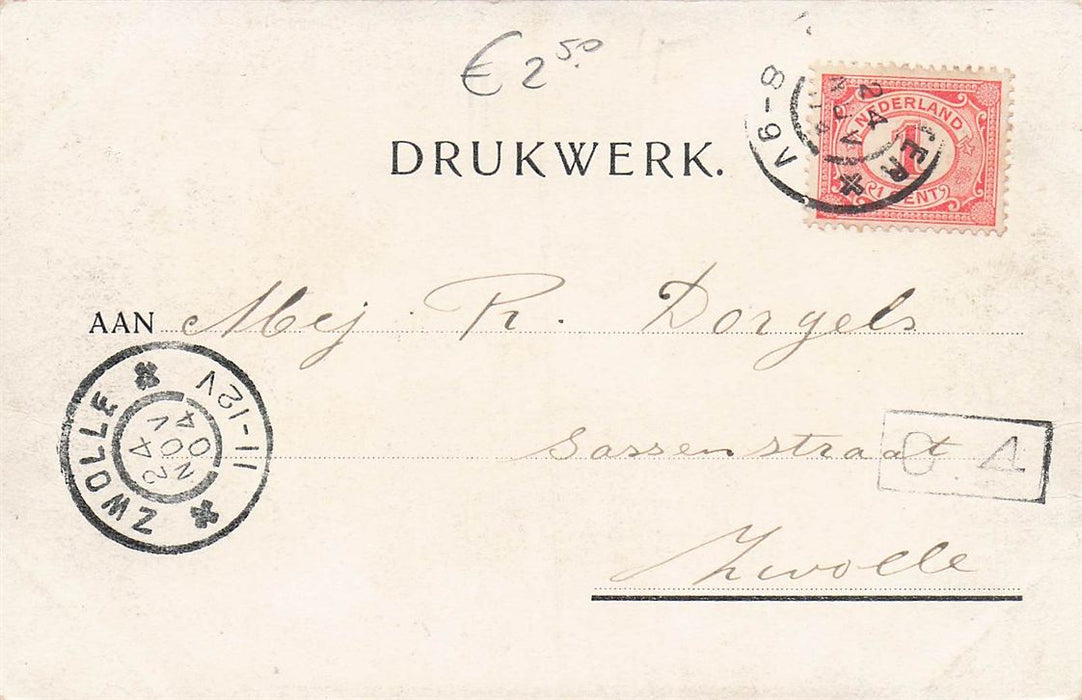 € 2 50
DRUKWERK.
NEDERLAND
1
1 CENT
24 NOV
6-8V
AAN Mej. R. Dorgels
Sassenstraat
Zwolle
ZWOLLE
11-12V
24
NOV
04